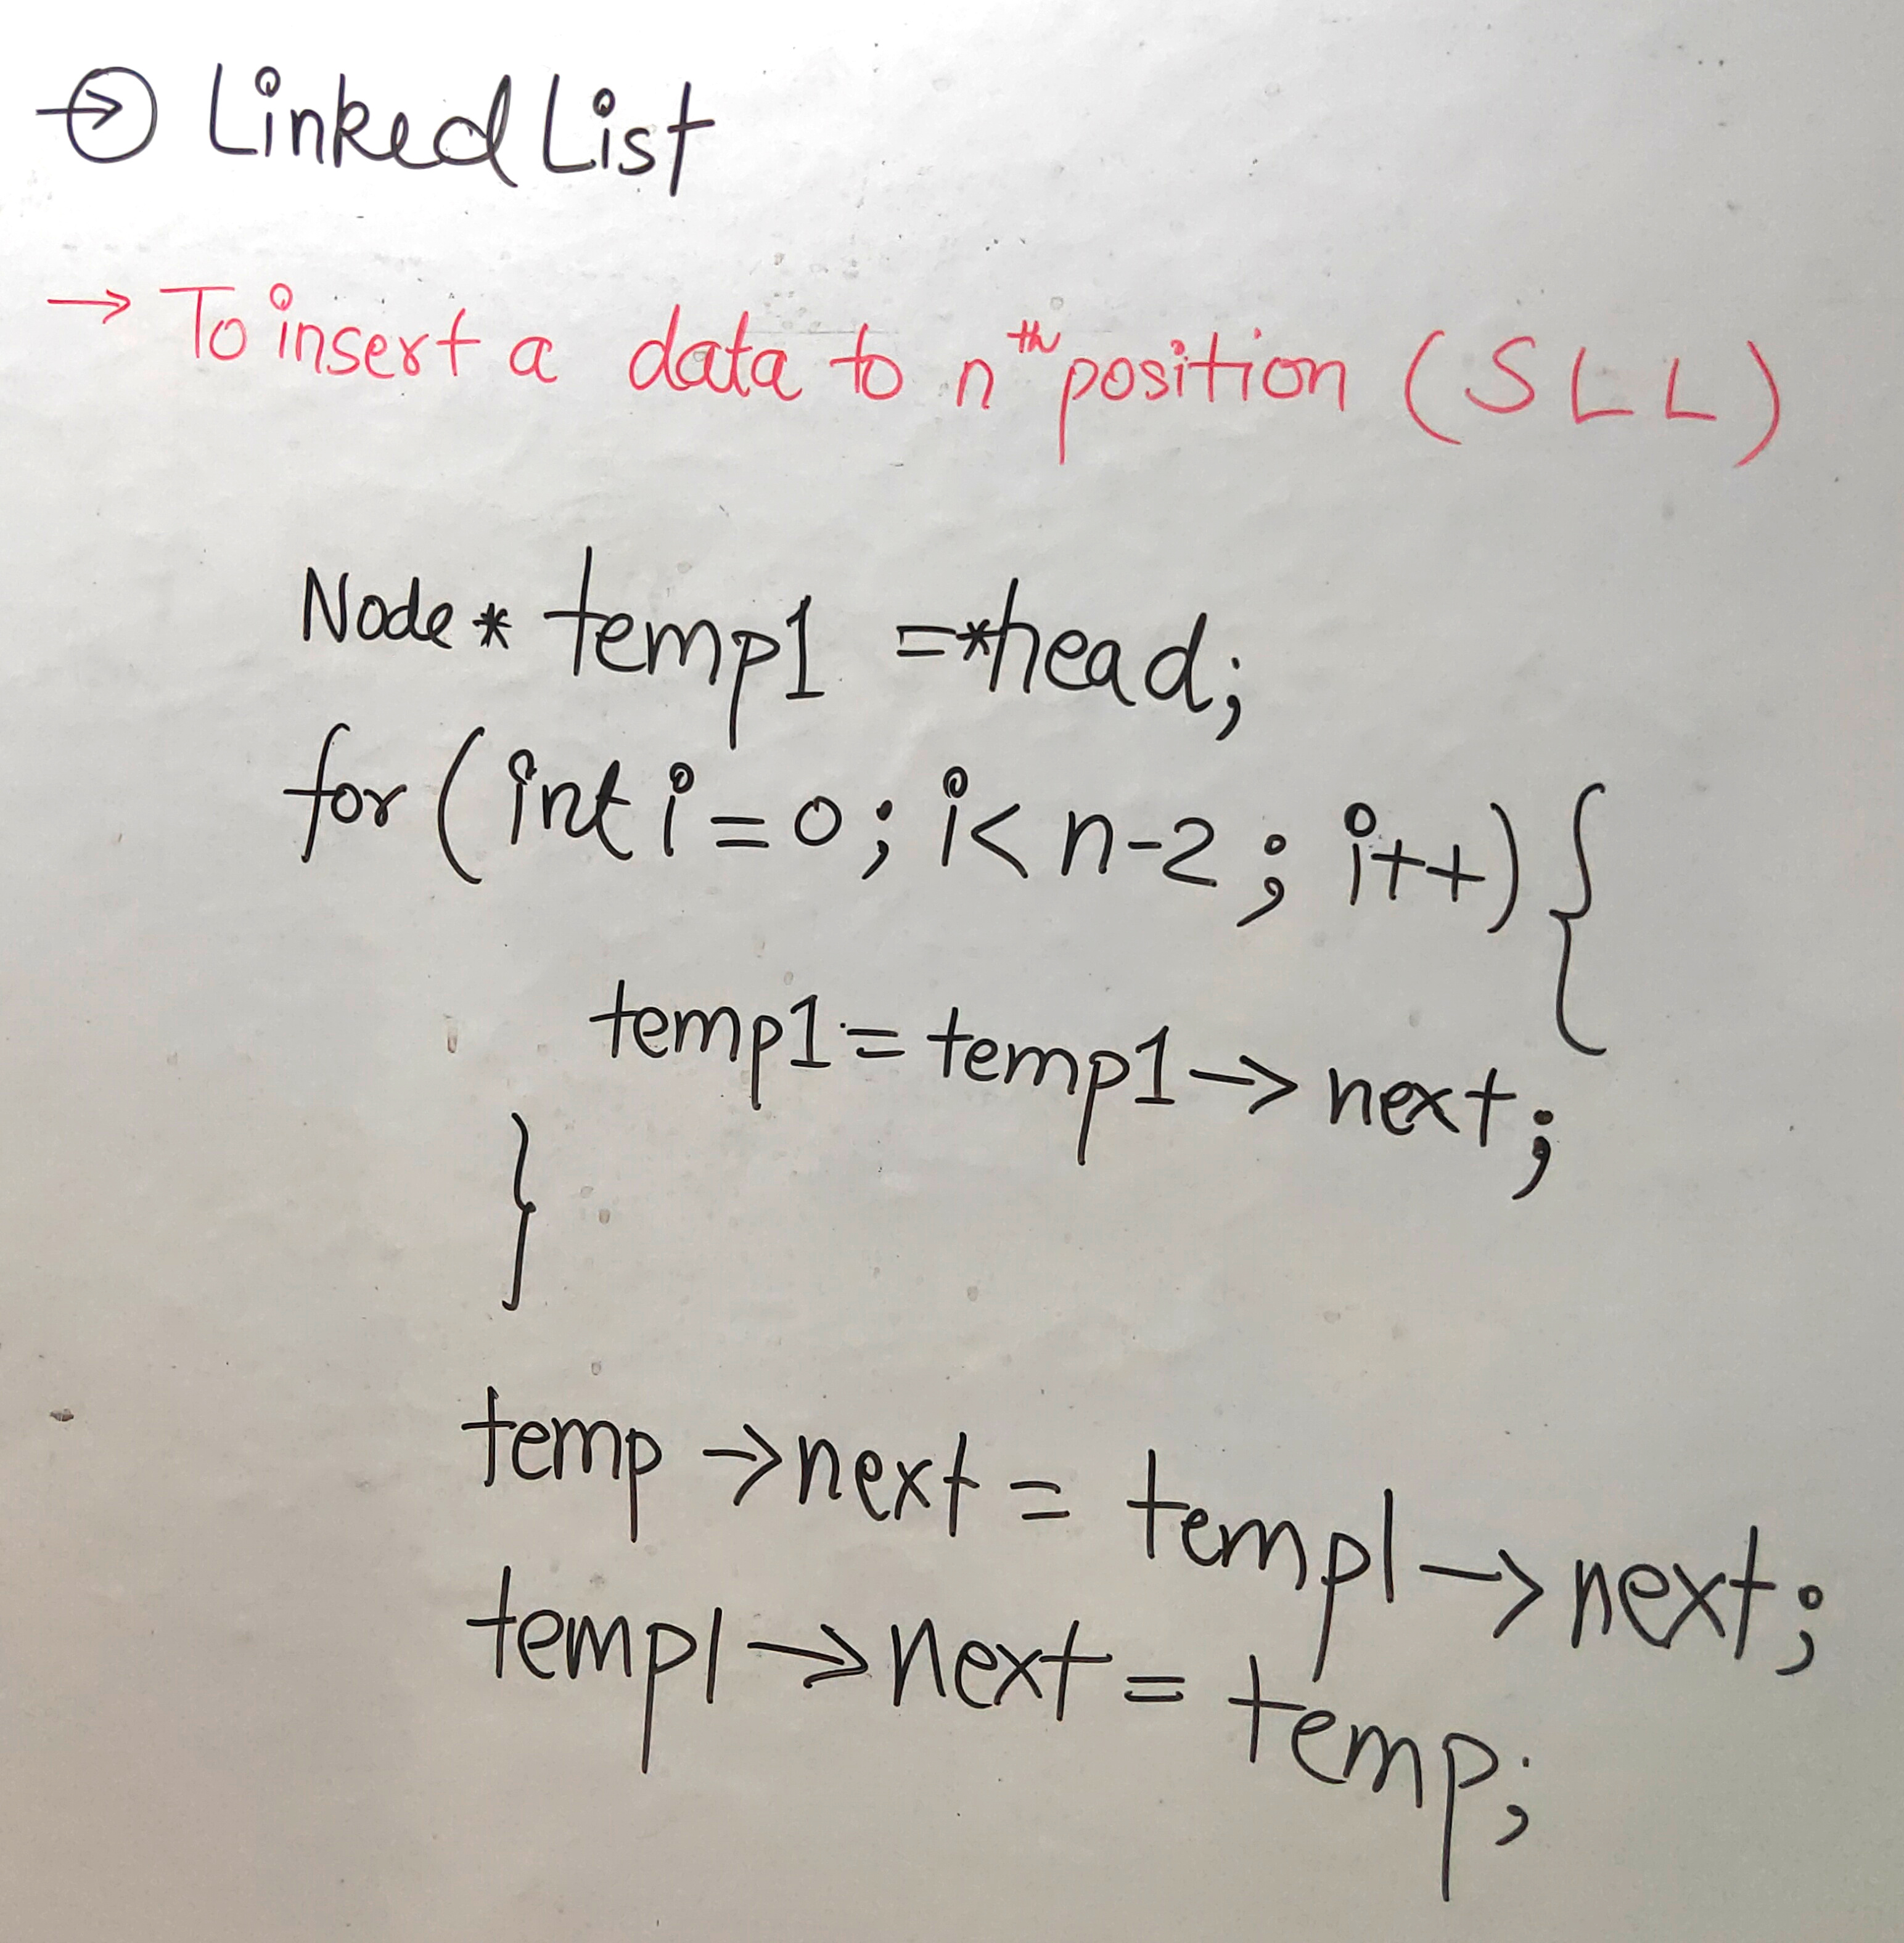 → Linked List
→ To insert a data to nth position (SLL)
Node* temp1 =*head;
for (int i=0; i<n-2; i++){
temp1=temp1->next;
}
temp->next = temp1->next;
temp1->next = temp;